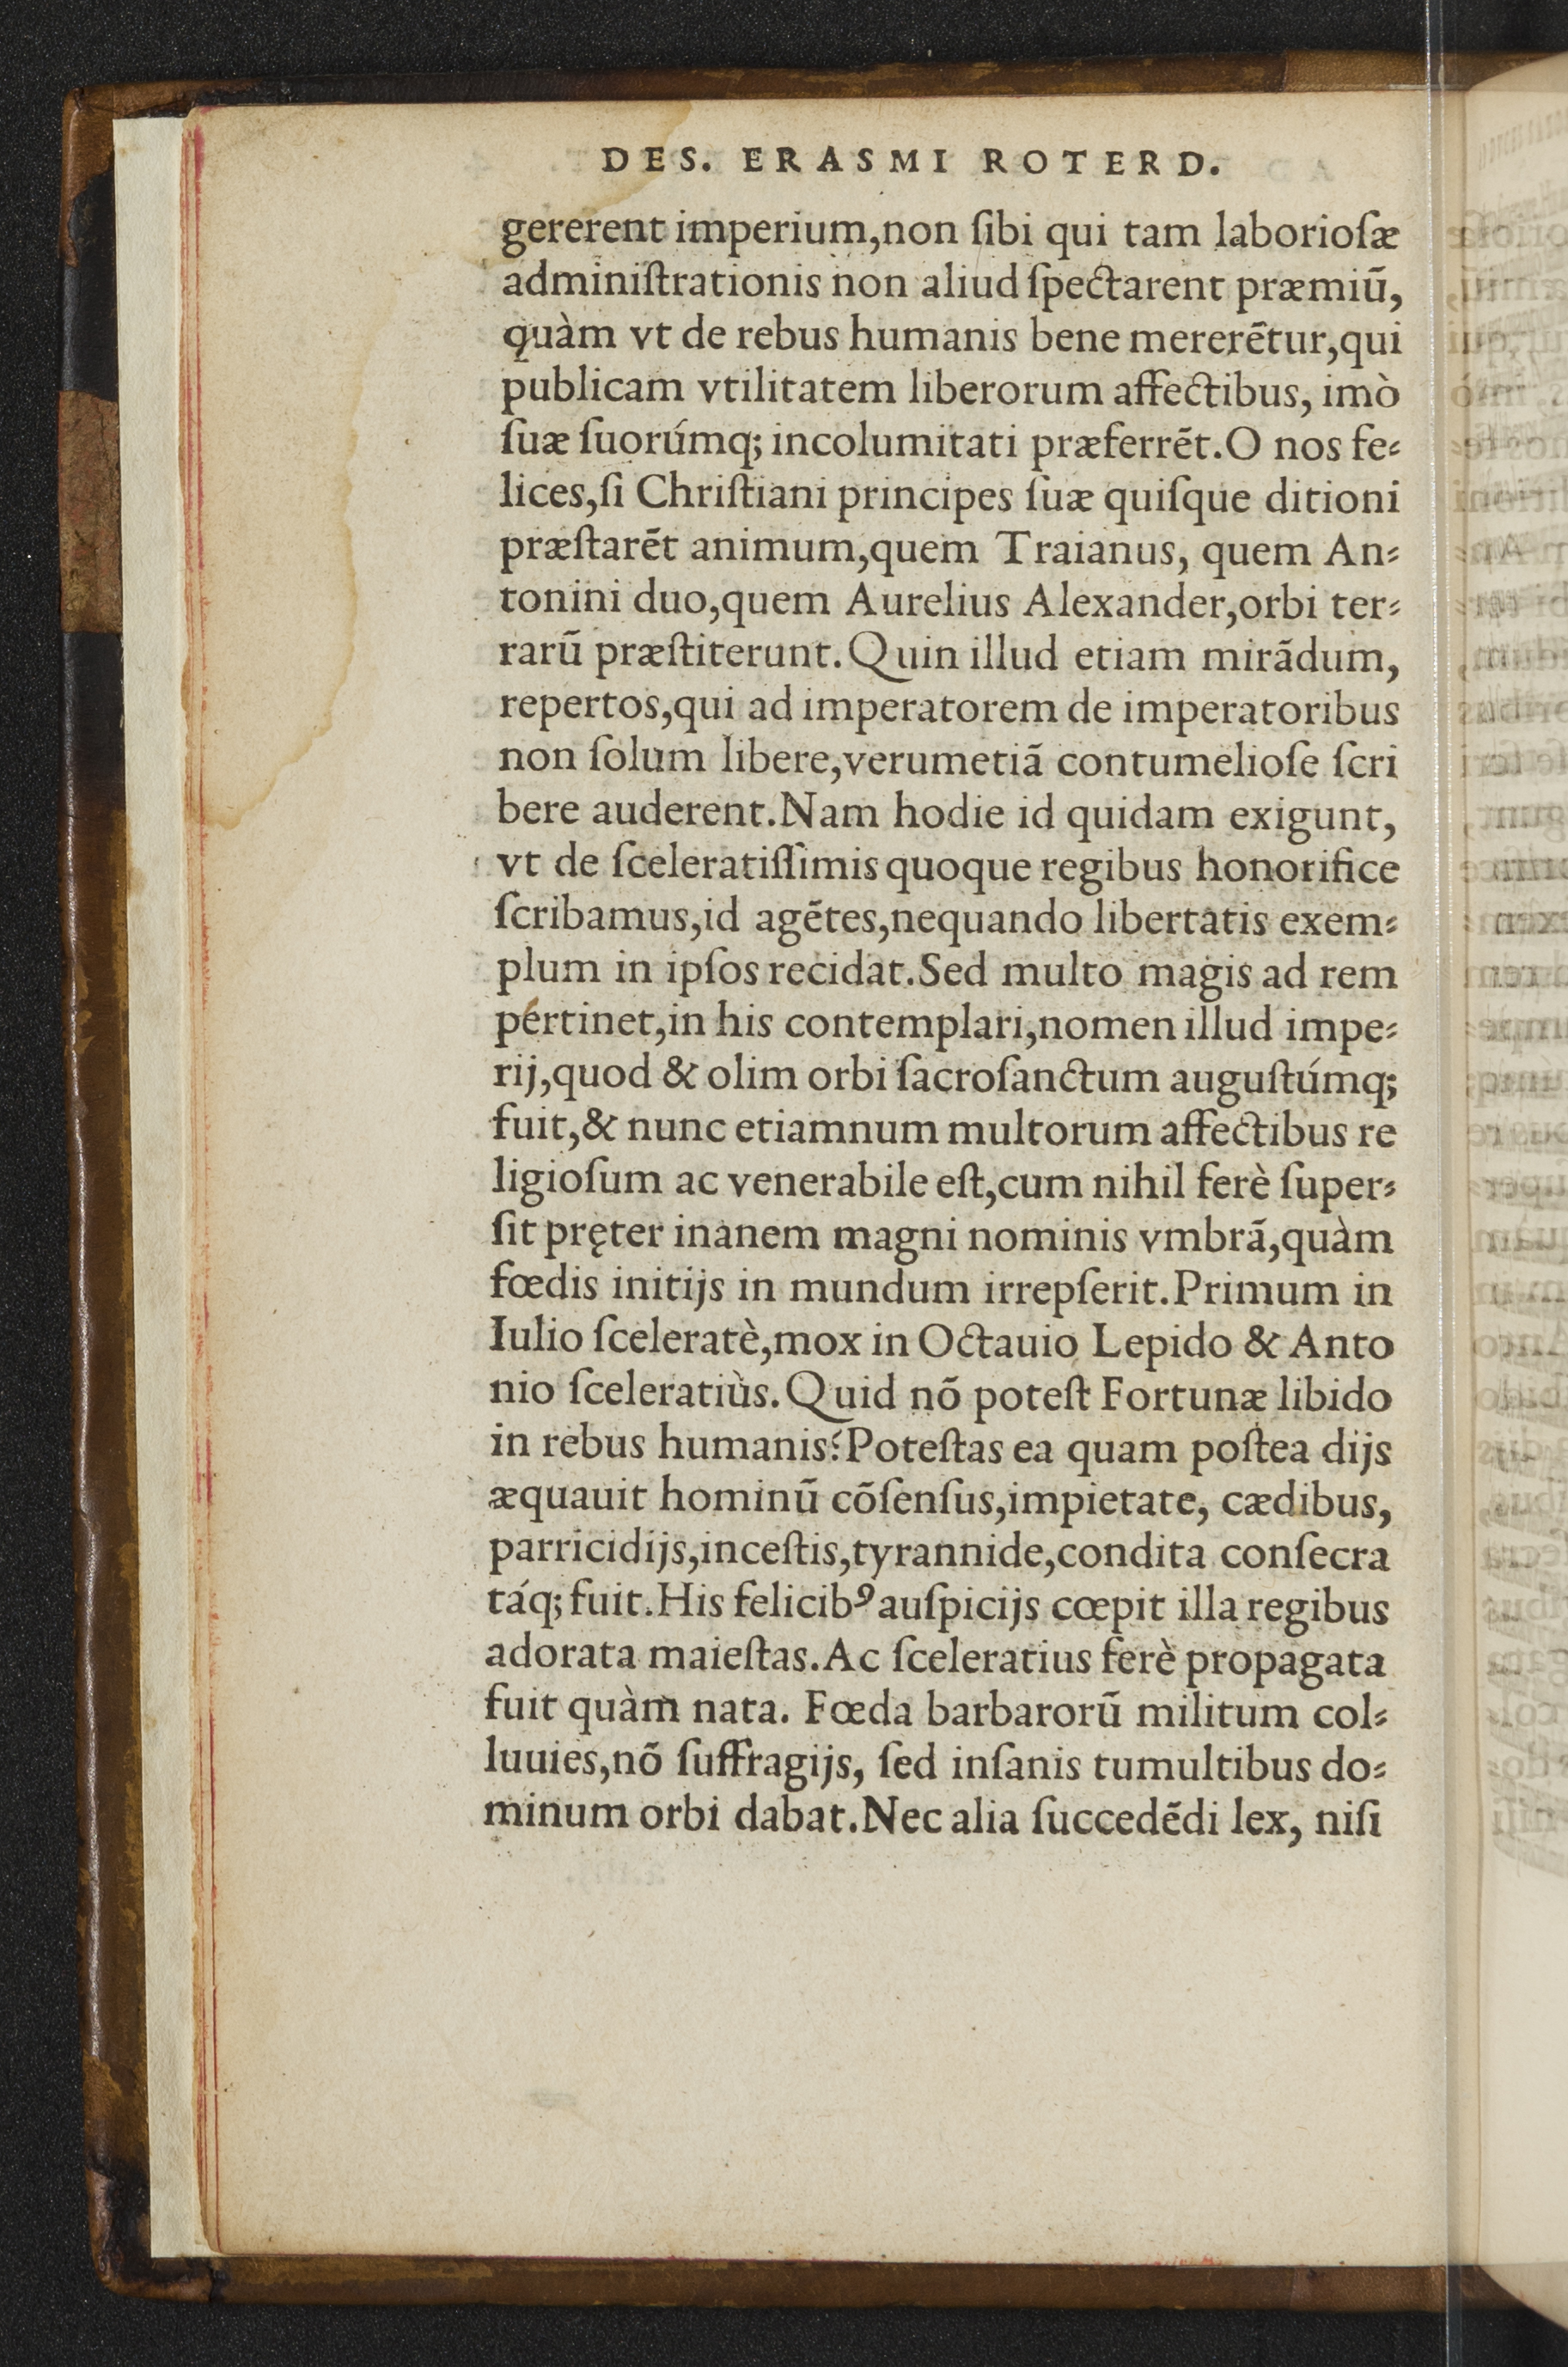 DES. ERASMI ROTERD.
gererent imperium,non ſibi qui tam laborioſæ
adminiſtrationis non aliud ſpectarent præmiū,
quàm vt de rebus humanis bene mererētur,qui
publicam vtilitatem liberorum affectibus, imò
ſuæ ſuorúmq; incolumitati præferrēt.O nos fe⸗
lices,ſi Chriſtiani principes ſuæ quiſque ditioni
præſtarēt animum,quem Traianus, quem An⸗
tonini duo,quem Aurelius Alexander,orbi ter⸗
rarū præſtiterunt.Quin illud etiam mirādum,
repertos,qui ad imperatorem de imperatoribus
non ſolum libere,verumetiā contumelioſe ſcri
bere auderent.Nam hodie id quidam exigunt,
vt de ſceleratiſſimis quoque regibus honorifice
ſcribamus,id agētes,nequando libertatis exem⸗
plum in ipſos recidat.Sed multo magis ad rem
pertinet,in his contemplari,nomen illud impe⸗
rij,quod & olim orbi ſacroſanctum auguſtúmq;
fuit,& nunc etiamnum multorum affectibus re
ligioſum ac venerabile eſt,cum nihil ferè ſuper⸗
ſit pręter inanem magni nominis vmbrā,quàm
fœdis initijs in mundum irrepſerit.Primum in
Iulio ſceleratè,mox in Octauio Lepido & Anto
nio ſceleratiùs.Quid nō poteſt Fortunæ libido
in rebus humanis?Poteſtas ea quam poſtea dijs
æquauit hominū cōſenſus,impietate, cædibus,
parricidijs,inceſtis,tyrannide,condita conſecra
táq; fuit.His felicibꝰ auſpicijs cœpit illa regibus
adorata maieſtas.Ac ſceleratius ferè propagata
fuit quàm nata. Fœda barbarorū militum col⸗
luuies,nō ſuffragijs, ſed inſanis tumultibus do⸗
minum orbi dabat.Nec alia ſuccedēdi lex, niſi